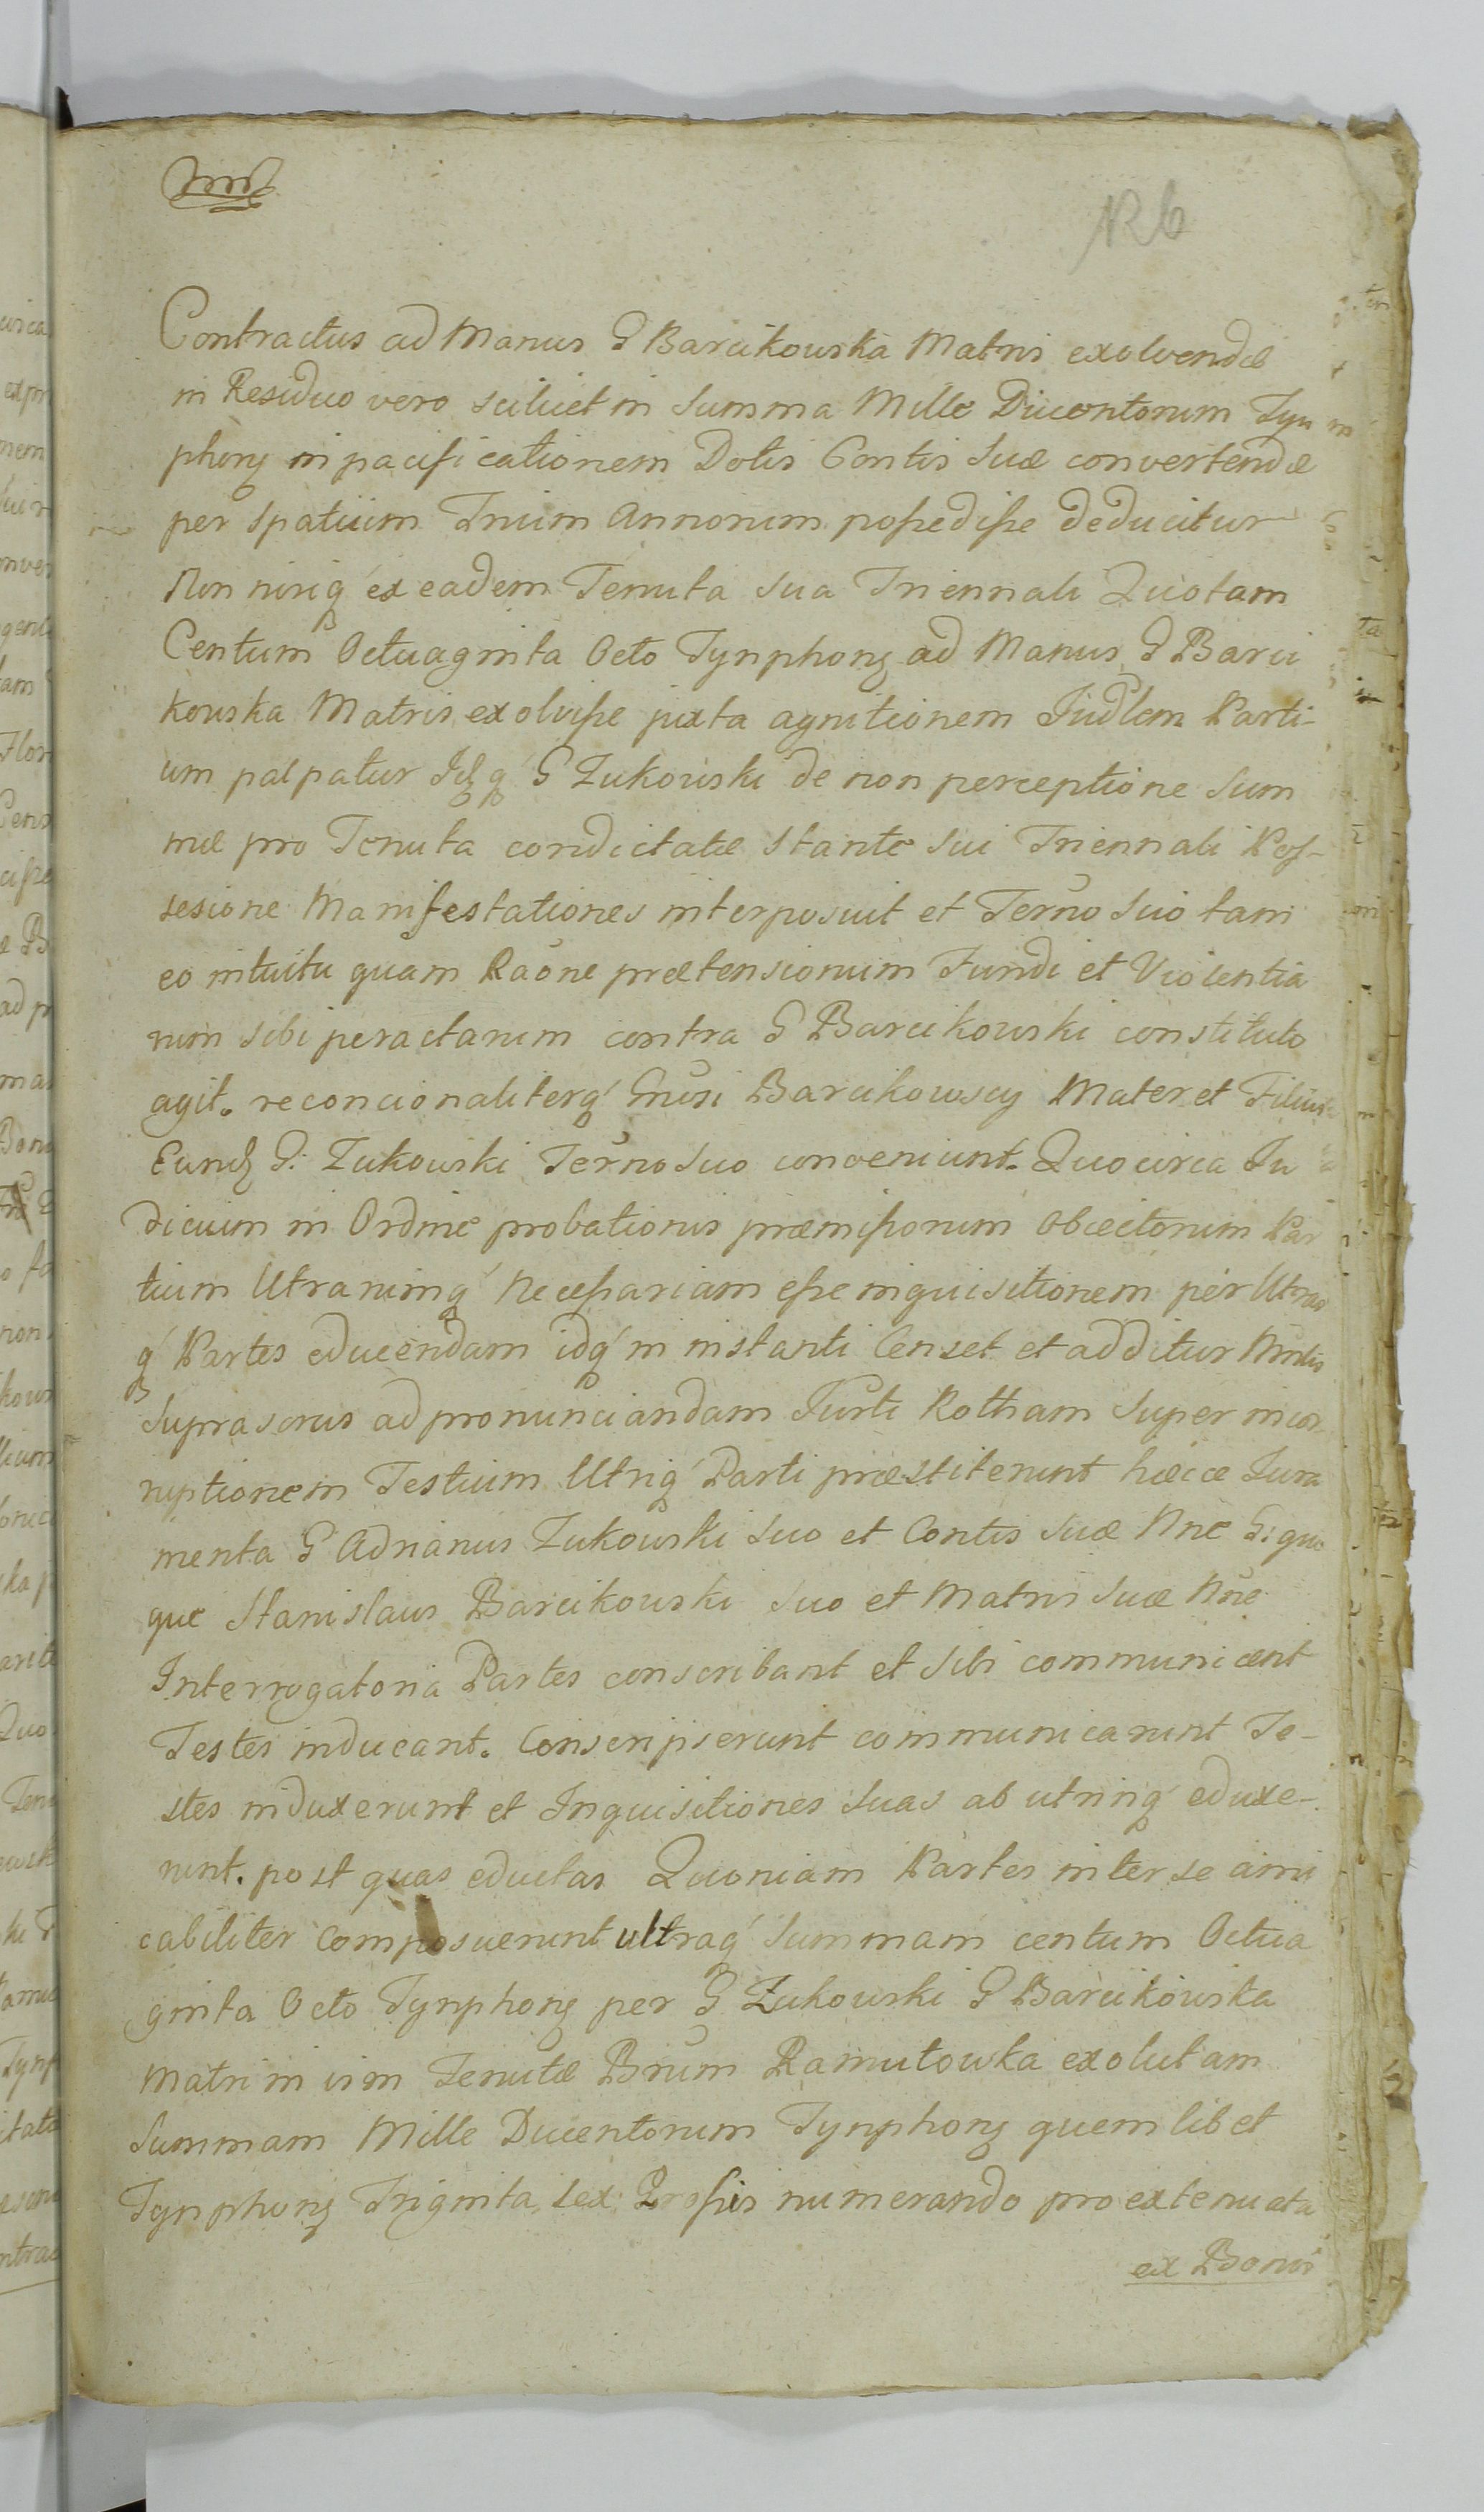 126
Contractus ad Manus G Barcikowska Matris exolvendæ
in Residuo vero scilicet in Summa Mille Ducentorum Tyn
phonʒ in pacificationem Dotis Contis Suæ convertendæ
per Spatium Trium Annorum possedisse deducitur
Non nisiq́ ex eadem Tenuta Sua Triennali Quotam
Centum Octuaginta Octo Tynphonʒ ad Manus G Barci
kowska Matris exolvisse juxta agnitionem Judlem Parti-
um palpatur Idʒq́ G Zukowski de non perceptione Sum
mæ pro Tenuta condictatæ Stante Sui Triennali Pos-
sesione Manifestationes interposuit et Terno Suo tam
eo intuitu quam Raone prætensionum Fundi et Violentia
rum sibi peractarum contra G Barcikowski constituto
agit. reconcionaliterq́ Gnusi Barcikowscy Mater et Filius
Eundʒ G: Zukowski Terno Suo conveniunt. Quocirca Ju
dicium in Ordine probationis præmissorum Obiectorum Par
tium Utrarumq́ Necessariam esse inquisitionem per Utras
q́ Partes educendam idq́ in instanti Censet et additur Mntis
Suprascris ad pronunciandam Jurti Rotham Super incor
ruptionem Testium Utriq́ Parti præstiterunt hæcce Jura
menta G Adrianus Zukowski Suo et Contis Suæ Nne G: quo
que Stanislaus Barcikowski Suo et Matris Suæ Nne
Interrogatoria Partes conscribant et Sibi communicent
Testes inducant. Conscripserunt communicarunt Te-
stes induxerunt et Inquisitiones Suas ab utrinq́ eduxe-
runt. post quas eductas Quoniam Partes inter se ami
cabiliter composuerunt ultraq́ Summam centum Octua
ginta Octo Tynphonʒ per G Zukowski G Barcikowska
Matri in vim Tenutæ Bnum Ramutowka exolutam
Summam Mille Ducentorum Tynphonʒ quemlibet
Tynphonʒ Triginta Sex Grossis numerando pro extenuata
ex Bonis